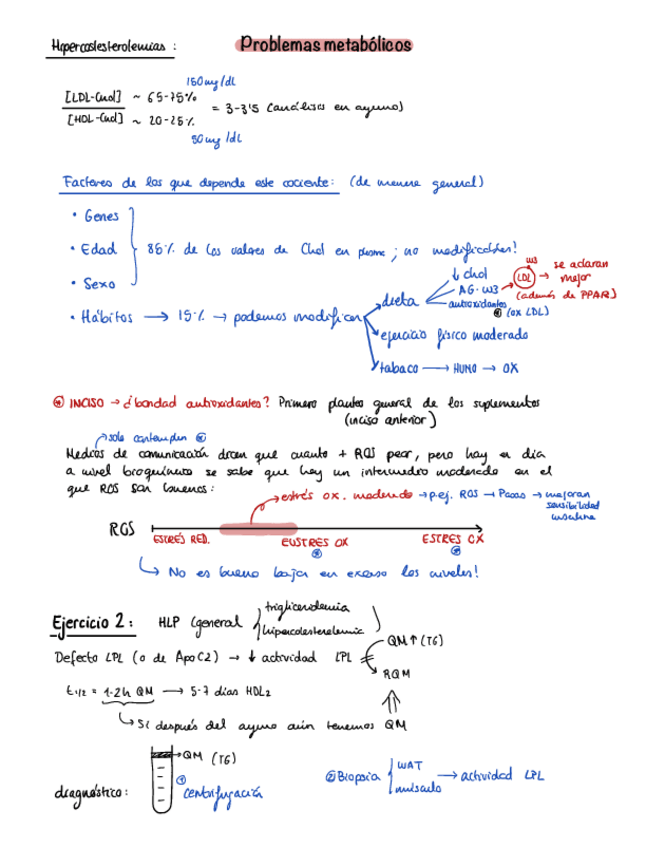 Hipercolesterolemias :
Problemas metabólicos
150 mg/dL
[LDL-Chol] ~ 65-75%
[HDL-Chol] ~ 20-25%
= 3-3'5 (análisis en ayuno)
50 mg/dL
Factores de los que depende este cociente: (de manera general)
• Genes
• Edad
• Sexo
85% de los valores de Chol en plasma ; no modificables!
• Hábitos → 15% → podemos modificar
dieta
↓ chol
AG-W3
antioxidantes
(ox LDL)
W3
LDL
→ se aclaran
mejor
(además de PPAR)
ejercicio físico moderado
tabaco → HUMO → OX
INCISO → ¿bondad antioxidantes? Primero planteo general de los suplementos
(inciso anterior)
solo contemplan
Medios de comunicación dicen que cuanto + ROS peor, pero hoy en día
a nivel bioquímico se sabe que hay un intermedio moderado en el
que ROS son buenos:
estrés ox. moderado → p.ej. ROS → Pasos → mejoran
sensibilidad
insulina
ROS
ESTRÉS RED.
EUSTRES OX
ESTRES OX
↳ No es bueno bajar en exceso los niveles!
Ejercicio 2 :
HLP (general
trigliceridemia
hipercolesterolemia
)
Defecto LPL (o de ApoC2) → ↓ actividad LPL
QM ↑ (TG)
RQM
t1/2 = 1-2h QM → 5-7 días HDL2
↳ Si después del ayuno aún tenemos QM
diagnóstico:
QM (TG)
① centrifugación
② Biopsia
WAT
músculo
→ actividad LPL